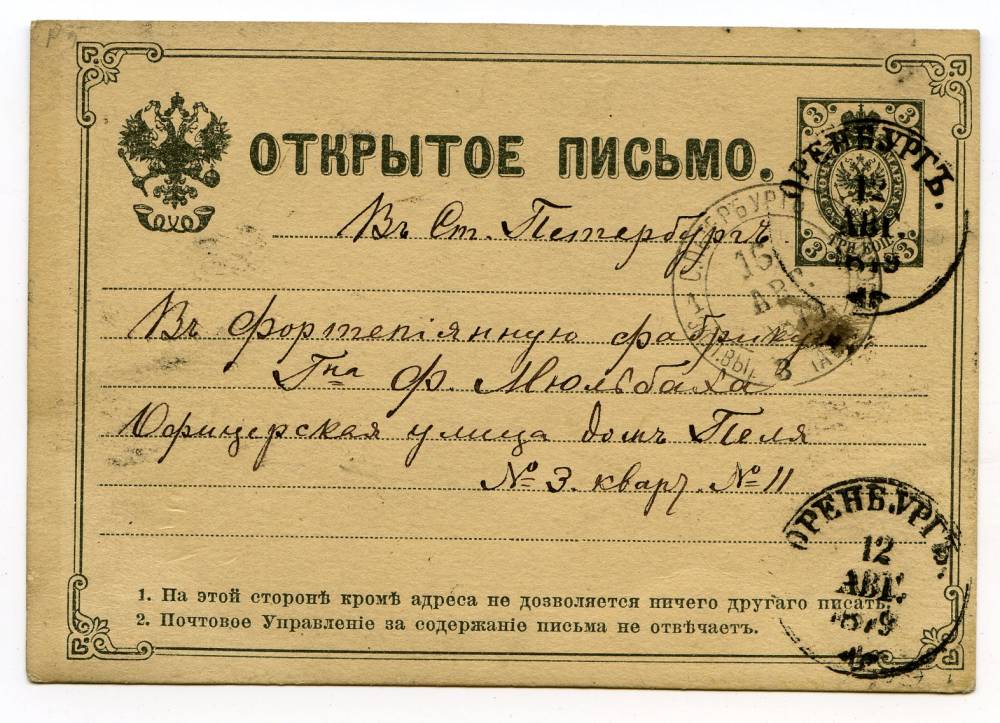 ОТКРЫТОЕ ПИСЬМО.
3 3
3 3
ТРИ КОП.
ОРЕНБУРГЪ.
12
АВГ.
1879
С.ПЕТЕРБУРГ
1
15
АВГ.
Въ Ст. Петербургъ
Въ фортепіянную фабрику
Гна Ф. Мюльбаха
Офицерская улица домъ Пеля
№ 3. кварт. № 11
ОРЕНБУРГЪ.
12
АВГ.
1879
1. На этой сторонѣ кромѣ адреса не дозволяется ничего другаго писать.
2. Почтовое Управленіе за содержаніе письма не отвѣчаетъ.